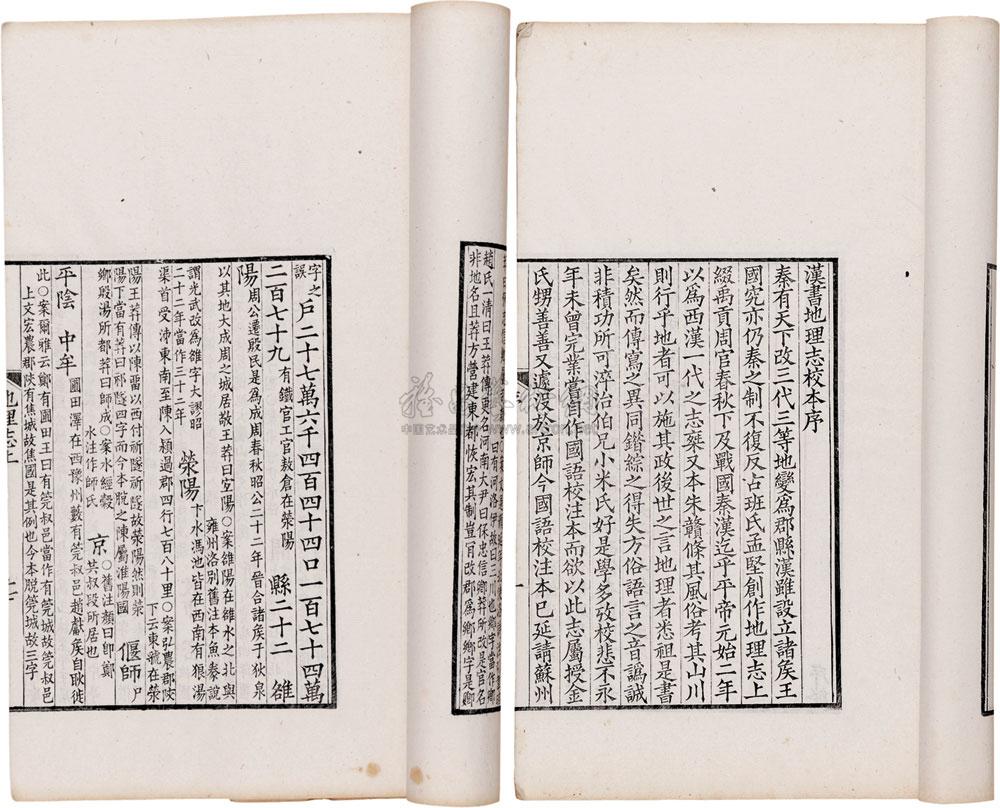 漢書地理志校本序
秦有天下改三代三等地變爲郡縣漢雖設立諸矦王
國究亦仍秦之制不復反古班氏孟堅創作地理志上
綴禹貢周官春秋下及戰國秦漢迄乎平帝元始二年
以爲西漢一代之志桀又本朱贛條其風俗考其山川
則行乎地者可以施其政後世之言地理者悉祖是書
矣然而傳寫之異同鍇綜之得失方俗語言之音譌誠
非積功所可淬治伯兄小米氏好是學多攷校悲不永
年未曾完業嘗自作國語校注本而欲以此志屬授金
氏甥善善又遽没於京師今國語校注本已延請蘇州
趙氏一清曰王莽傳更名河南大尹曰保忠信鄉莽所改是官名
非地名且莽方營建東都恢宏其制豈肯改郡爲鄉鄉字是卿
字之誤 戶二十七萬六千四百四十四口一百七十四萬
二百七十九 有鐵官工官敖倉在滎陽 縣二十二 雒
陽 周公遷殷民是爲成周春秋昭公二十二年晉合諸矦于狄泉
以其地大成周之城居敬王莽曰宜陽○案雒陽在雒水之北與
雍州洛别舊注本魚豢說
謂光武改爲雒字大謬昭
二十二年當作三十二年 滎陽 卞水馮池皆在西南有狼湯
渠首受泲東南至陳入潁過郡四行七百八十里○案弘農郡陝
下云東虢在滎
陽王莽傳以陳雷以西付祈隧祈隧故滎陽然則滎
陽下當有莽曰祁隧四字而今本脫之陳屬淮陽國 偃師 尸
鄉殷湯所都莽曰師成○案水經穀
水注作師氏 京 ○舊注顏曰卽鄭
共叔段所居也
平陰 中牟 圃田澤在西豫州藪有莞叔邑趙獻矦自耿徙
此○案爾雅云鄭有圃田王曰有莞叔邑當作有莞城故莞叔邑
上文宏農郡陝有焦城故焦國是其例也今本脫莞城故三字
地理志上